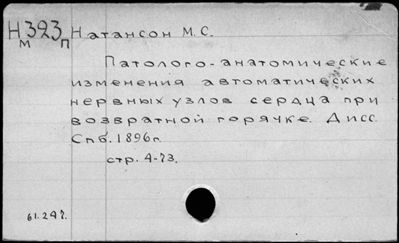 Н 393 Натансон М.С.
М П
Патолого-анатомические
изменения автоматических
нервных узлов сердца при
возвратной горячке. Дисс.
Спб. 1896г.
стр. 4-73.
61.247.